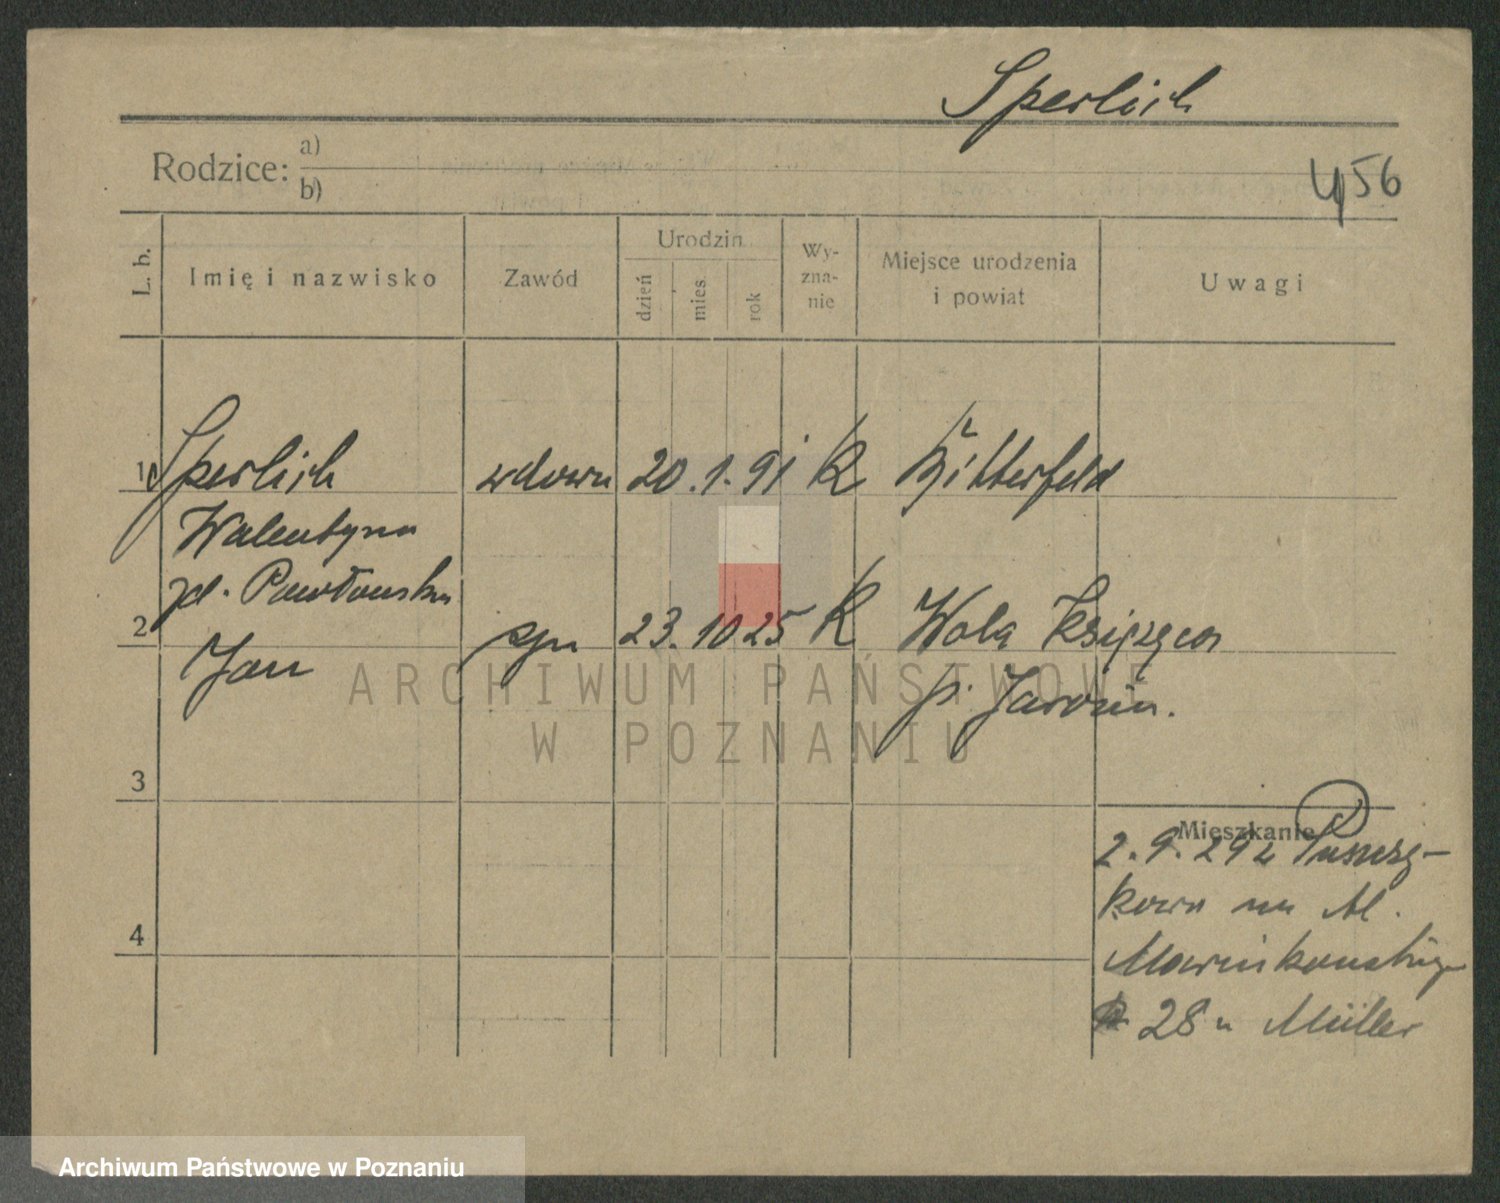 Sperlich
Rodzice: a)
b)
4156
L. b.
Imię i nazwisko
Zawód
Urodzin
dzień
mies
rok
Wy-
zna-
nie
Miejsce urodzenia
i powiat
Uwagi
1 Sperlich wdowa 20. 1. 91 K Bitterfeld
Walentyna
zd. Pawłowska
2 Jan syn 23. 10 25 K Wola Książęca
p. Jarocin.
3
4
Mieszkanie
2. 9. 29 z Puszcz-
kowa na
28 u Müller
ARCHIWUM PAŃSTWOWE
W POZNANIU
Archiwum Państwowe w Poznaniu